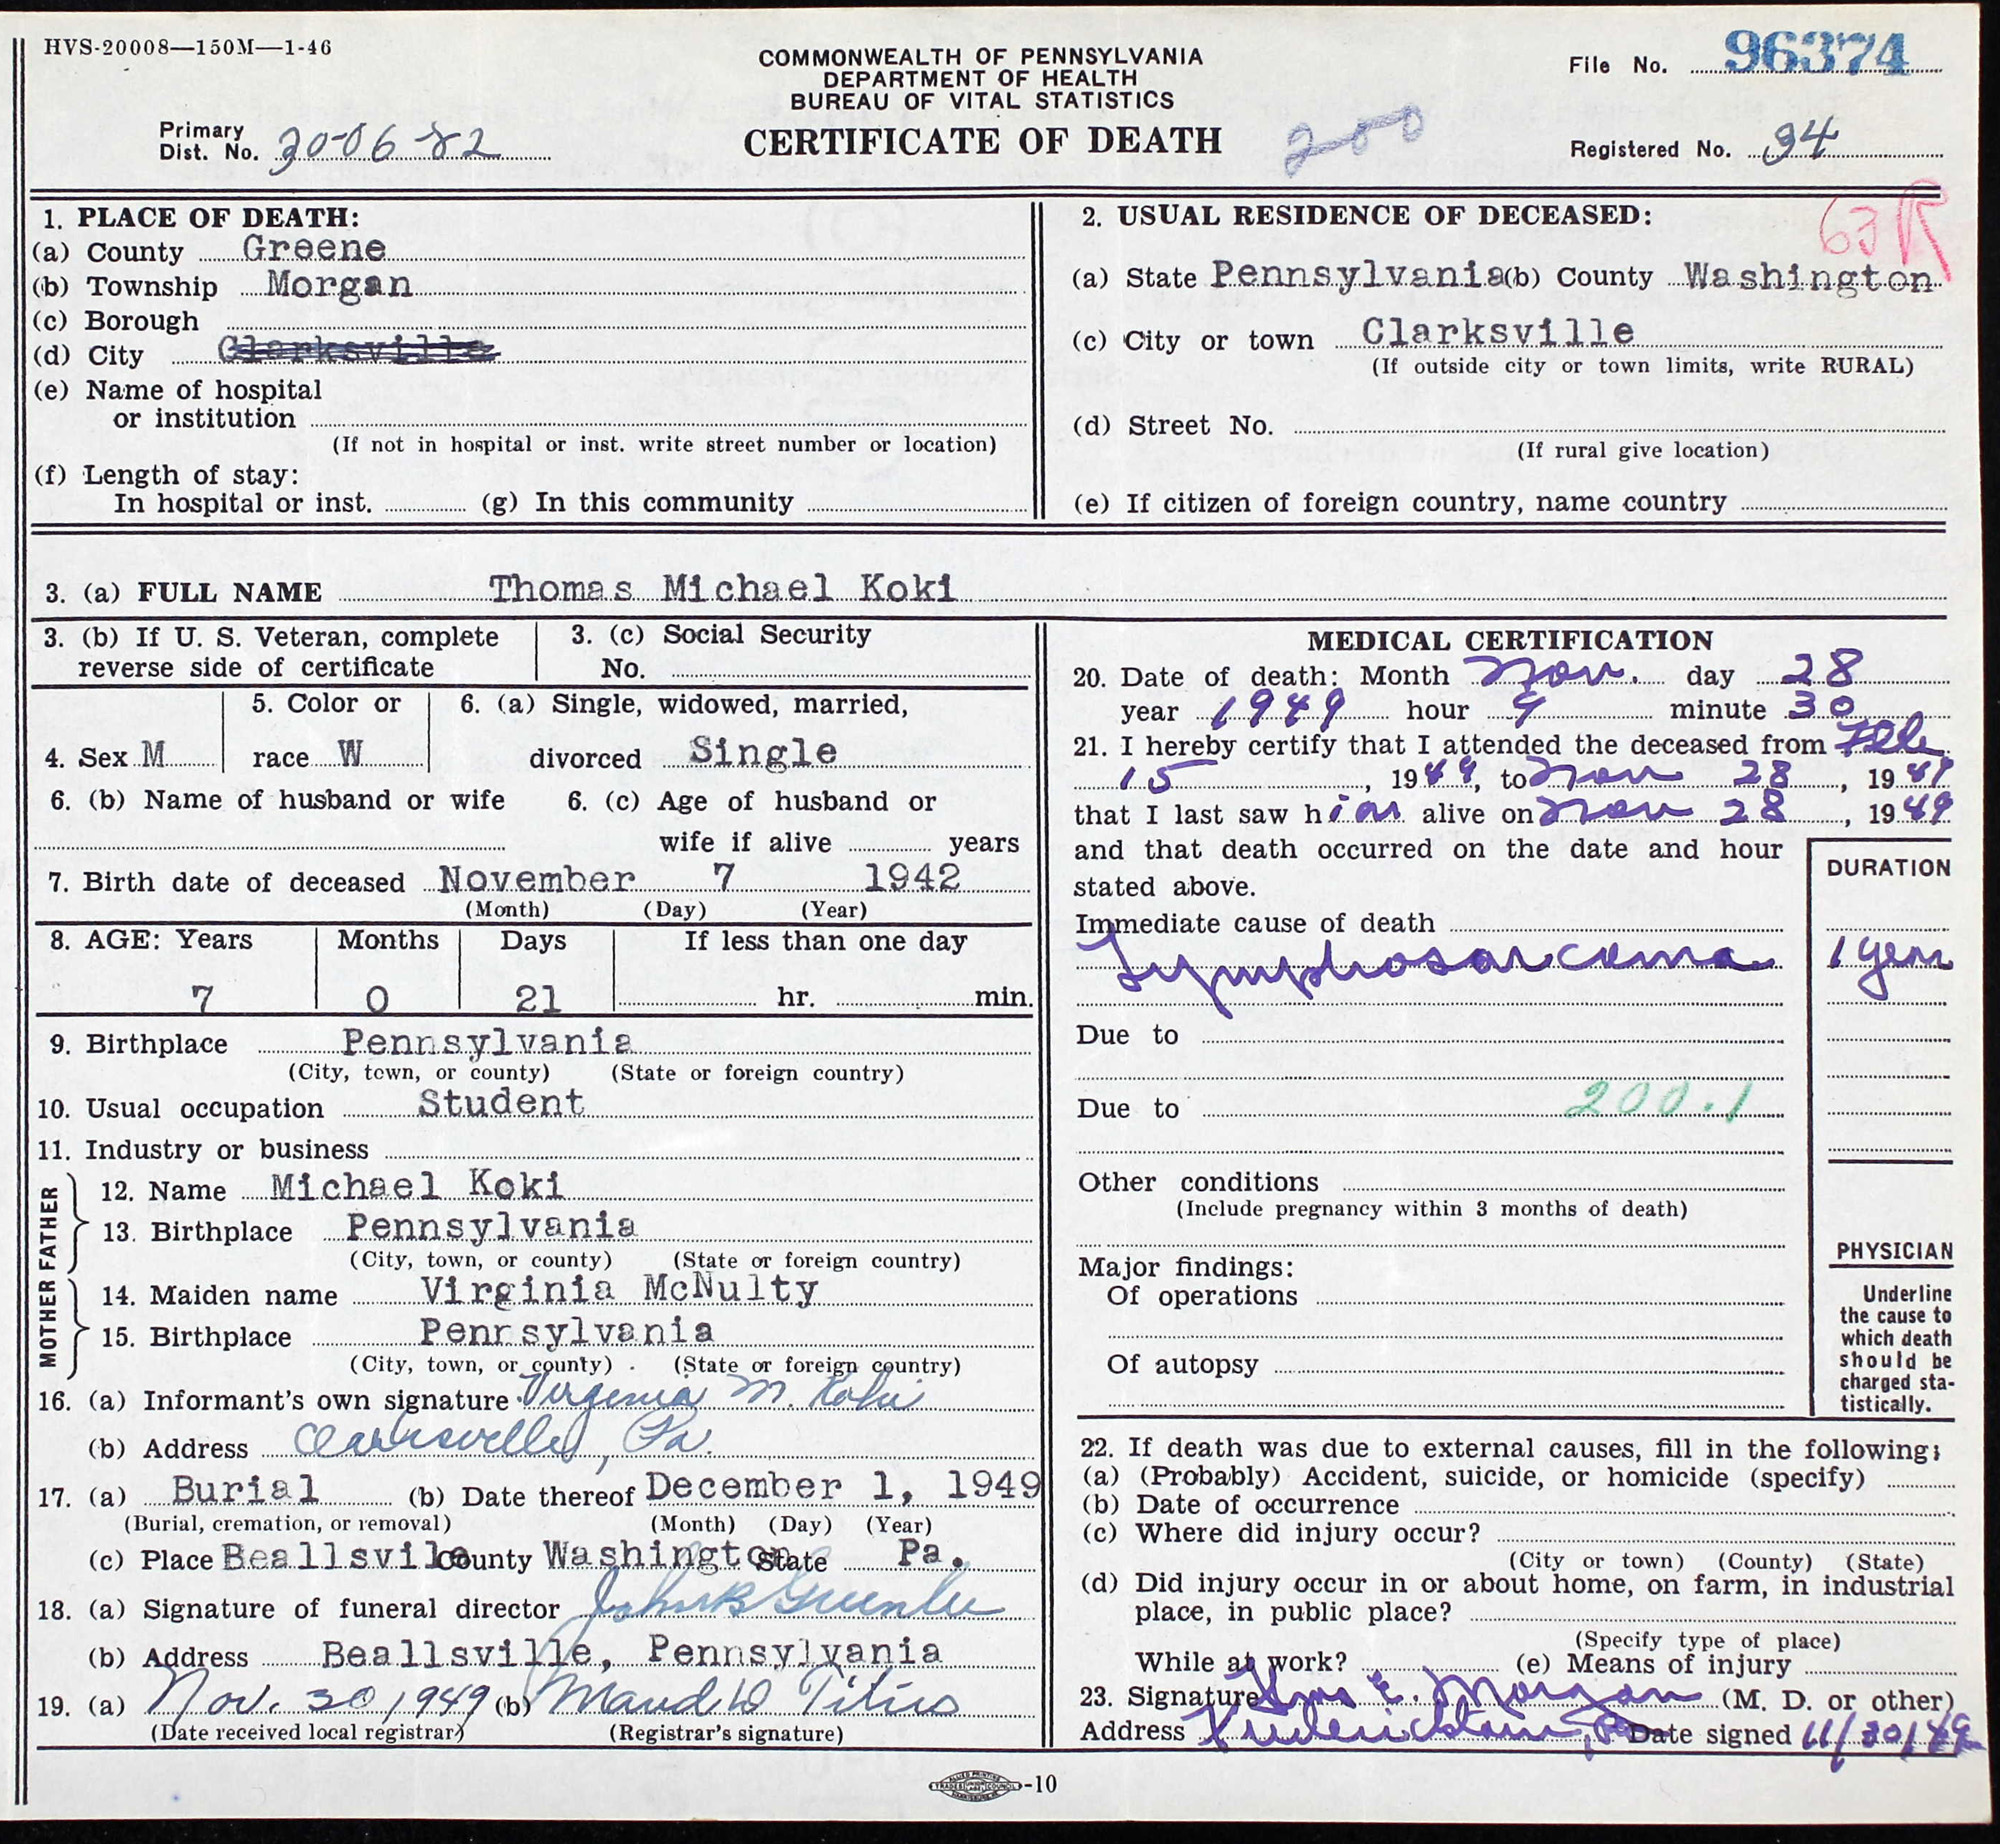 HVS-20008—150M—1-46
COMMONWEALTH OF PENNSYLVANIA
DEPARTMENT OF HEALTH
BUREAU OF VITAL STATISTICS
CERTIFICATE OF DEATH
200
File No. 96374
Primary
Dist. No. 30-06-82
Registered No. 34
1. PLACE OF DEATH:
(a) County Greene
(b) Township Morgan
(c) Borough
(d) City Clarksville
(e) Name of hospital
or institution
(If not in hospital or inst. write street number or location)
(f) Length of stay:
In hospital or inst. (g) In this community
2. USUAL RESIDENCE OF DECEASED:
63 R
(a) State Pennsylvania (b) County Washington
(c) City or town Clarksville
(If outside city or town limits, write RURAL)
(d) Street No.
(If rural give location)
(e) If citizen of foreign country, name country
3. (a) FULL NAME Thomas Michael Koki
3. (b) If U. S. Veteran, complete
reverse side of certificate
3. (c) Social Security
No.
4. Sex M
5. Color or
race W
6. (a) Single, widowed, married,
divorced Single
6. (b) Name of husband or wife
6. (c) Age of husband or
wife if alive years
7. Birth date of deceased November 7 1942
(Month) (Day) (Year)
8. AGE: Years Months Days If less than one day
7 0 21 hr. min.
9. Birthplace Pennsylvania
(City, town, or county) (State or foreign country)
10. Usual occupation Student
11. Industry or business
FATHER
12. Name Michael Koki
13. Birthplace Pennsylvania
(City, town, or county) (State or foreign country)
MOTHER
14. Maiden name Virginia McNulty
15. Birthplace Pennsylvania
(City, town, or county) (State or foreign country)
16. (a) Informant's own signature Virginia M. Koki
(b) Address Clarksville, Pa.
17. (a) Burial (b) Date thereof December 1, 1949
(Burial, cremation, or removal) (Month) (Day) (Year)
(c) Place Beallsville County Washington State Pa.
18. (a) Signature of funeral director John B Greenlee
(b) Address Beallsville, Pennsylvania
19. (a) Nov. 30, 1949 (b) Maud W Titus
(Date received local registrar) (Registrar's signature)
MEDICAL CERTIFICATION
20. Date of death: Month Nov. day 28
year 1949 hour 9 minute 30
21. I hereby certify that I attended the deceased from Feb
15, 1949, to Nov 28, 1949
that I last saw him alive on Nov 28, 1949
and that death occurred on the date and hour
stated above.
DURATION
Immediate cause of death
Lymphosarcoma 1 year
Due to
Due to 200.1
Other conditions
(Include pregnancy within 3 months of death)
Major findings:
Of operations
Of autopsy
PHYSICIAN
Underline
the cause to
which death
should be
charged sta-
tistically.
22. If death was due to external causes, fill in the following:
(a) (Probably) Accident, suicide, or homicide (specify)
(b) Date of occurrence
(c) Where did injury occur?
(City or town) (County) (State)
(d) Did injury occur in or about home, on farm, in industrial
place, in public place?
(Specify type of place)
While at work? (e) Means of injury
23. Signature E. Morgan (M. D. or other)
Address Fredericktown, Pa Date signed 11/30/49
-10